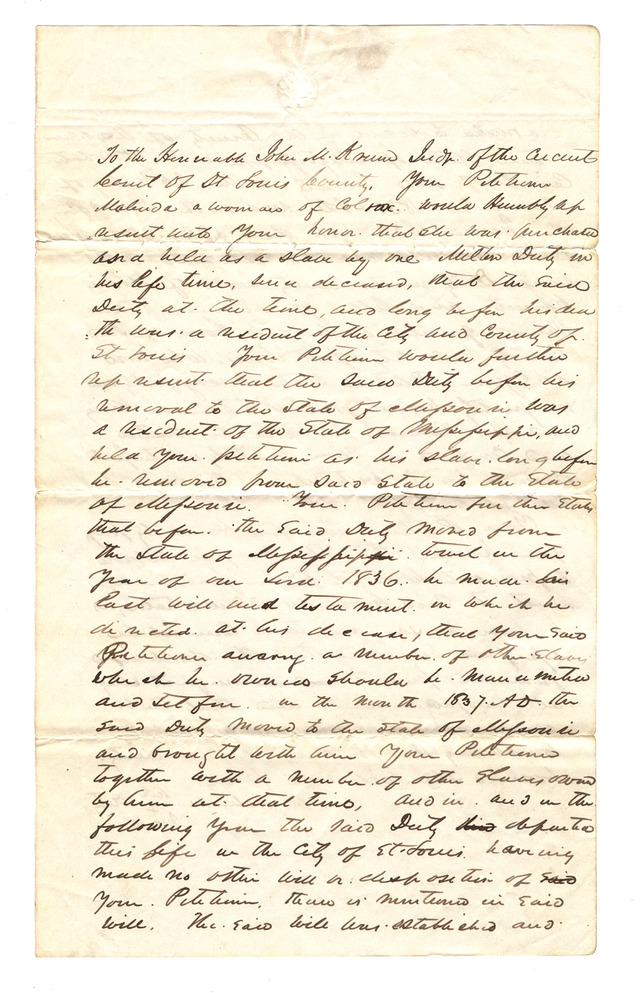 To the Honorable John M. Krum Judge of the Circuit
Court of St Louis County. Your Petitioner
Malinda a woman of Color. would Humbly rep
resent unto Your honor that she was purchased
and held as a slave by one Milton Duty in
his life time, since deceased, that the said
Duty at the time, and long before his dea
th was a resident of the City and County of
St Louis Your Petitioner would further
represent that the said Duty before his
removal to the State of Missouri was
a resident of the State of Mississippi, and
held Your petitioner as his slave long before
he removed from said State to the State
of Missouri. Your Petitioner further States
that before the said Duty moved from
the State of Mississippi towit in the
Year of our Lord 1836. he made his
Last will and testament in which he
directed at his decease, that Your said
Petitioner among a number of other Slaves
which he owned should be manumitted
and set free in the month 1837. AD the
said Duty moved to the State of Missouri
and brought with him Your Petitioner
together with a number of other Slaves owned
by him at that time, and in and in the
following Year the said Duty his departed
this life in the City of St. Louis having
made no other will or disposition of said
Your Petitioner, than is mentioned in said
will. The said will was established and